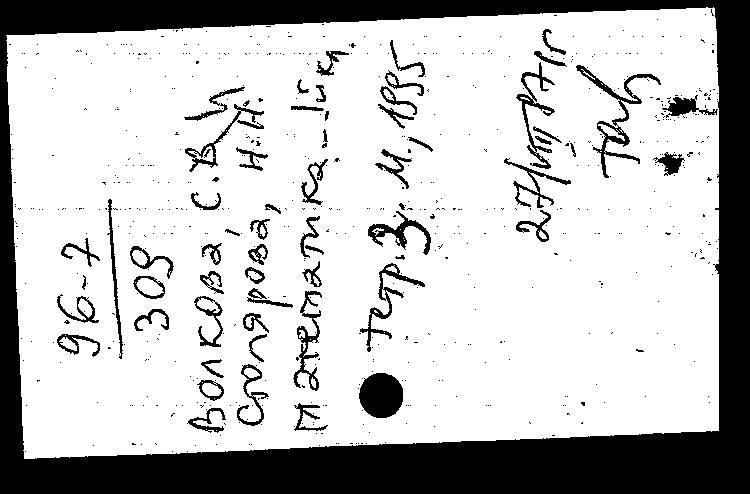 96-7
309
Волкова, С. В. И
Столярова, Н. Н.
Математика. – 1й кл.
тетр. 3. М., 1995
27/VIII 97 г